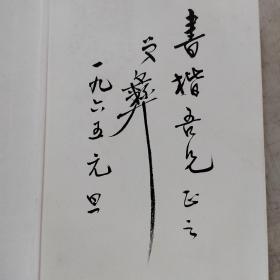 書楷吾兄正之
彝
一九六五元旦